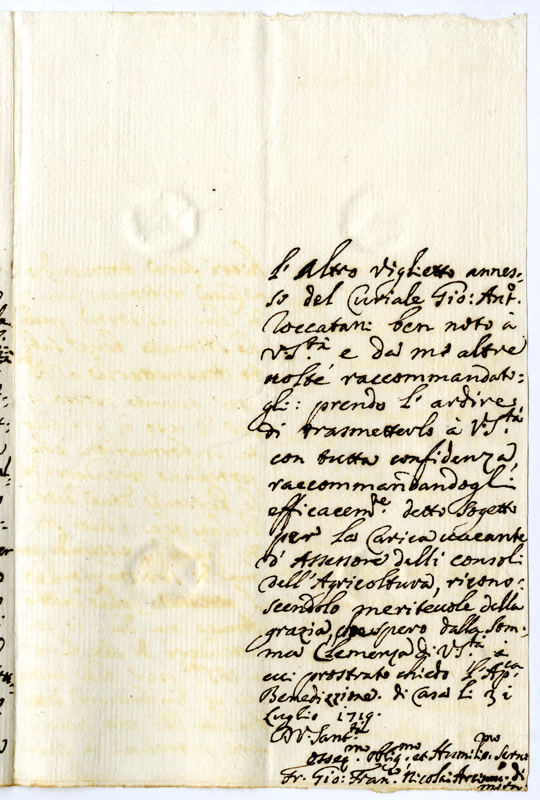 L'Altro Viglietto annes-
so del Curiale Gio: Antº.
Toccatani ben noto à
V. S.tà e da me altre
volte raccommandato-
gli: prendo l'ardire
di trasmetterlo à V. S.tà
con tutta confidenza,
raccommandandogli
efficacem.te detto Sogetto
per la Carica vacante
d'Assessore delli consoli
dell'Agricoltura, ricono-
scendolo meriteuole della
grazia, che spero dalla Som-
ma Clemenza di V. S.tà a
cui prostrato chiedo l'Ap.ca
Benedizzione. di Casa li 31
Luglio 1719.
D V. Sant.tà
osseq.mo oblig.mo et Humiliss.mo Seruo
Fr. Gio: Fran.co Nicolai Arciu.o di
mirra